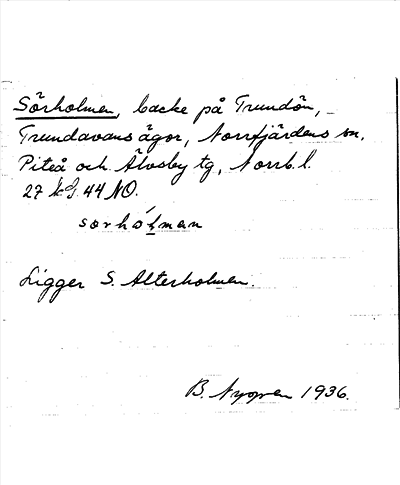 Sörholmen, backe på Trundön,
Trundavans ägor, Norrfjärdens sn,
Piteå och Älvsby tg, Norrb. l.
27 44 NO.
Ligger S. Alterholmen.
B. 1936.